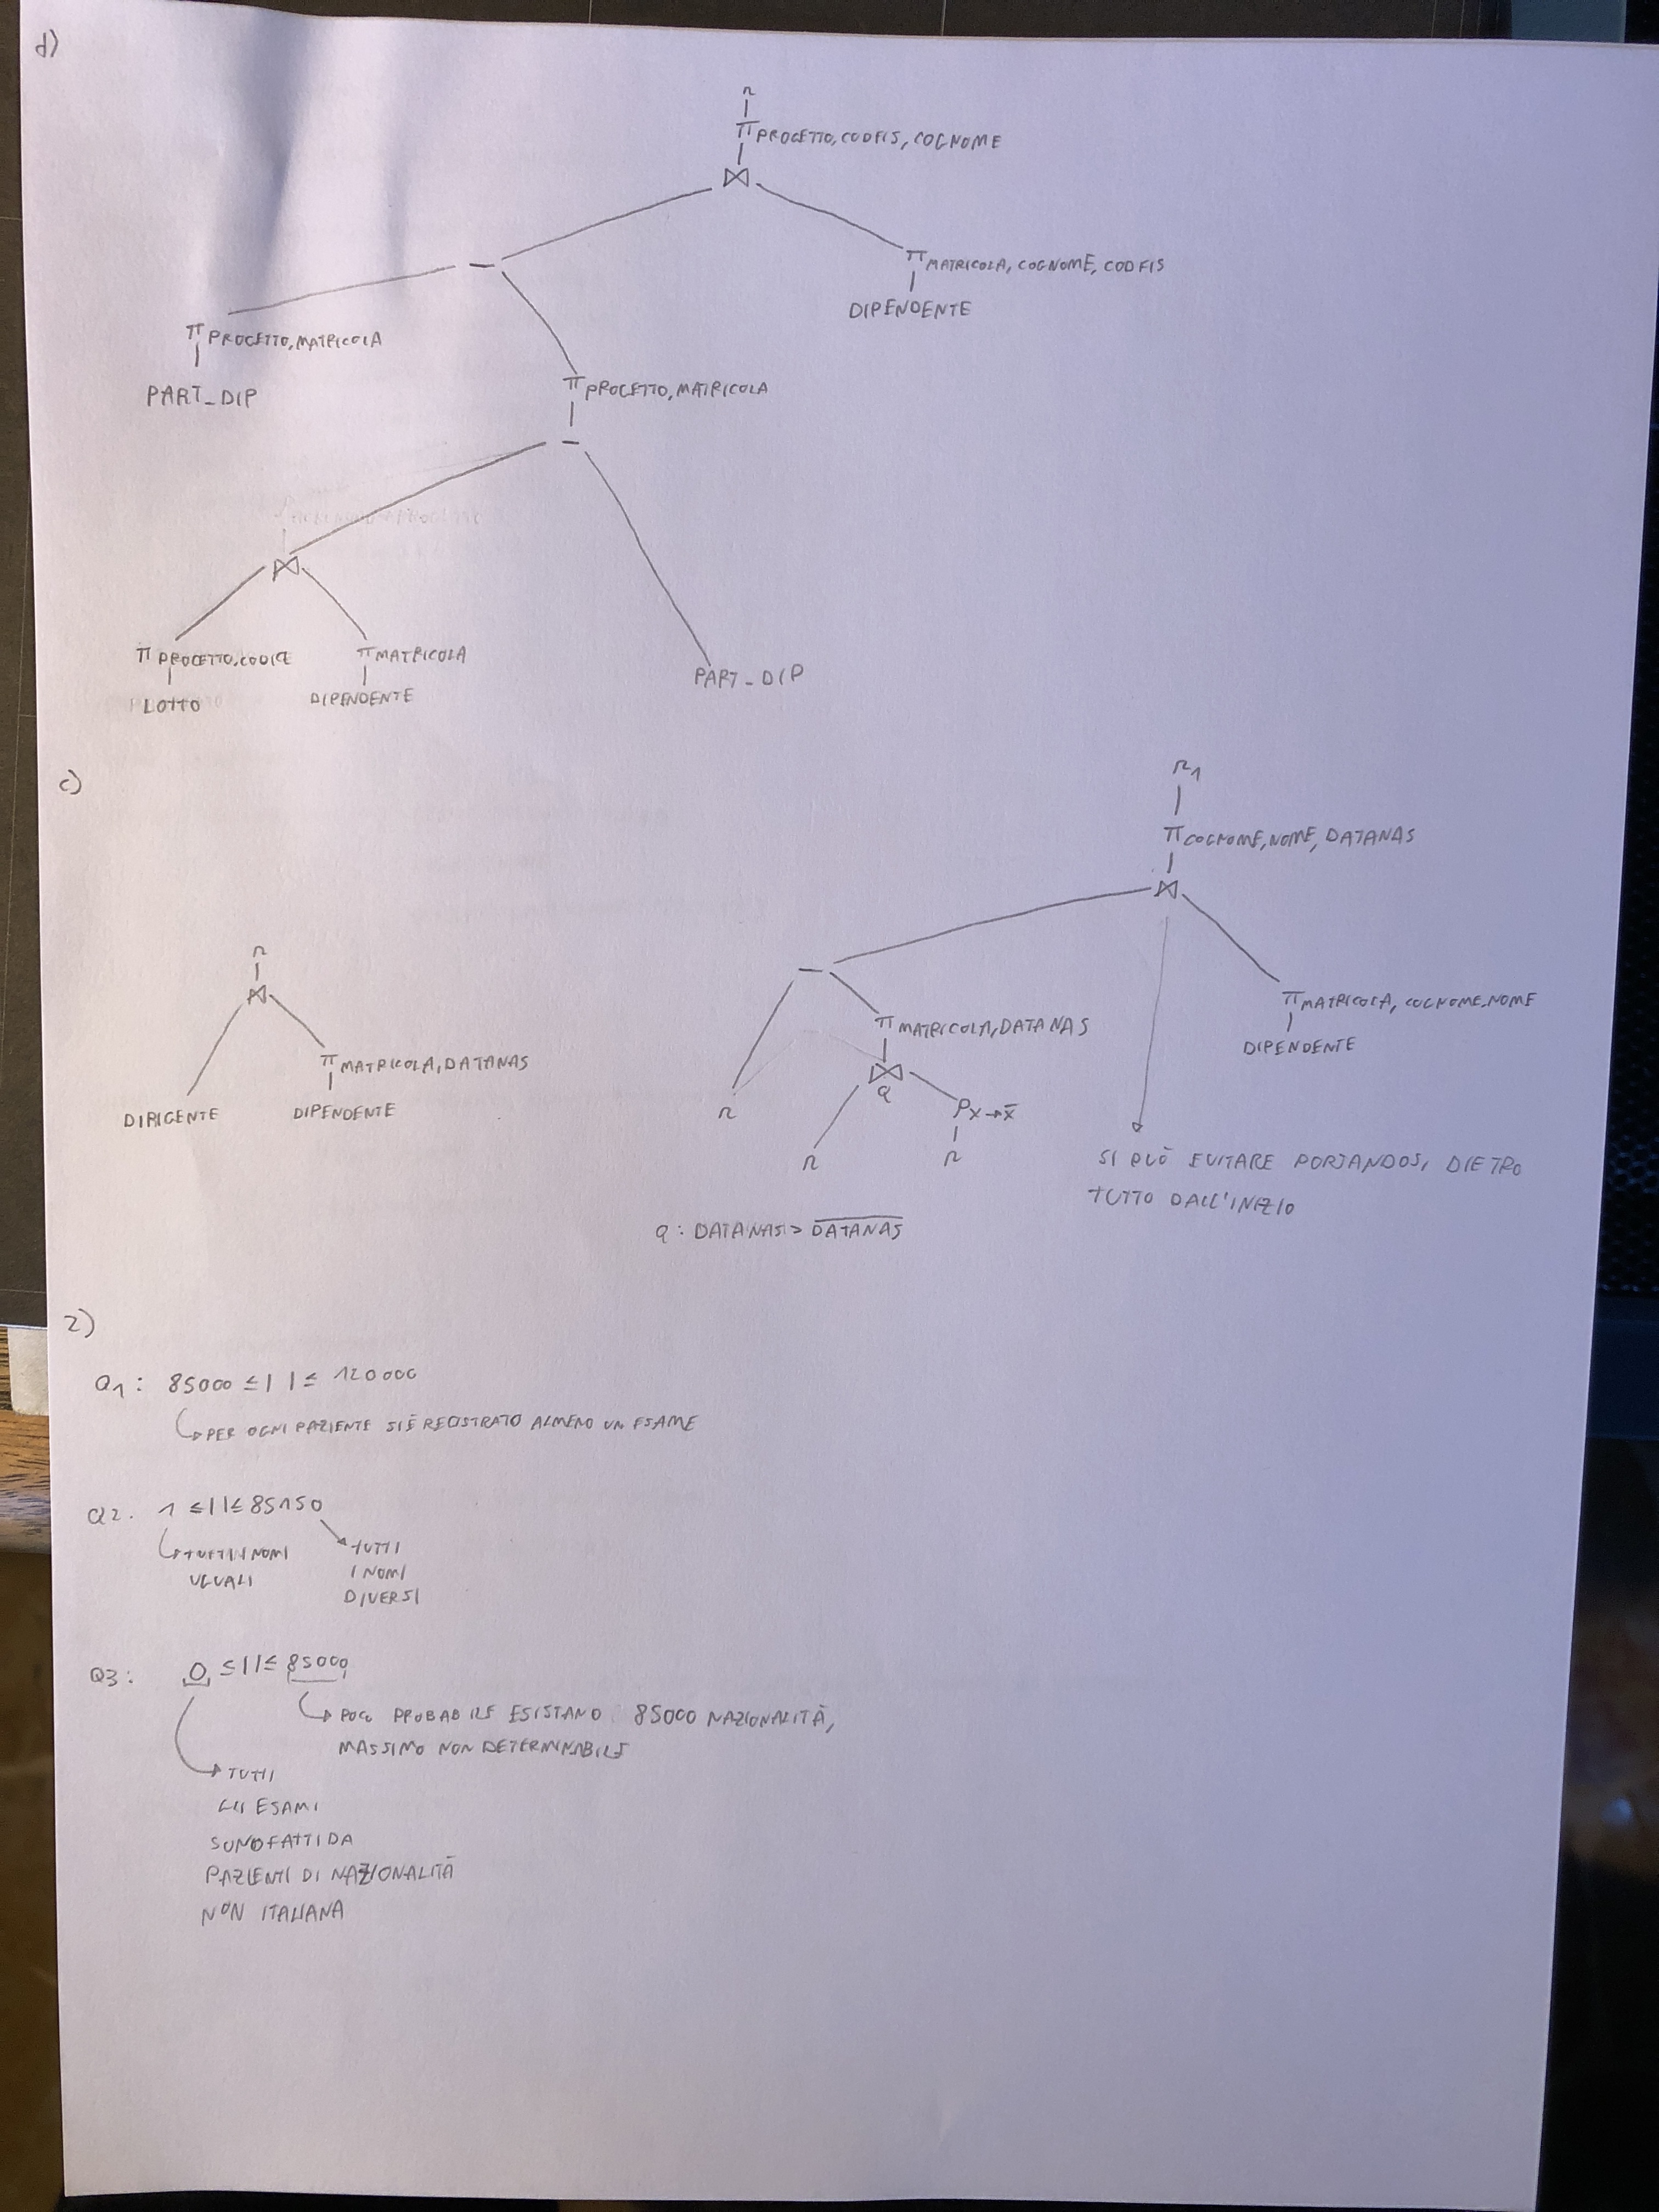 d)
r
π PROGETTO, CODFIS, COGNOME
⋈
−
π MATRICOLA, COGNOME, CODFIS
DIPENDENTE
π PROGETTO, MATRICOLA
PART_DIP
π PROGETTO, MATRICOLA
−
⋈
π PROGETTO, CODICE
π MATRICOLA
LOTTO
DIPENDENTE
PART_DIP
c)
r
⋈
π MATRICOLA, DATANAS
DIRIGENTE
DIPENDENTE
r1
π COGNOME, NOME, DATANAS
⋈
−
π MATRICOLA, COGNOME, NOME
DIPENDENTE
π MATRICOLA, DATANAS
⋈
Q
r
ρ X→X̅
r
r
SI PUÒ EVITARE PORTANDOSI DIETRO
TUTTO DALL'INIZIO
Q: DATANAS > D̅A̅T̅A̅N̅A̅S̅
2)
Q1: 85000 ≤ | | ≤ 120000
PER OGNI PAZIENTE SI È REGISTRATO ALMENO UN ESAME
Q2. 1 ≤ | | ≤ 85150
TUTTI I NOMI
UGUALI
TUTTI
I NOMI
DIVERSI
Q3: 0 ≤ | | ≤ 85000
POCO PROBABILE ESISTANO 85000 NAZIONALITÀ,
MASSIMO NON DETERMINABILE
TUTTI
GLI ESAMI
SONO FATTI DA
PAZIENTI DI NAZIONALITÀ
NON ITALIANA